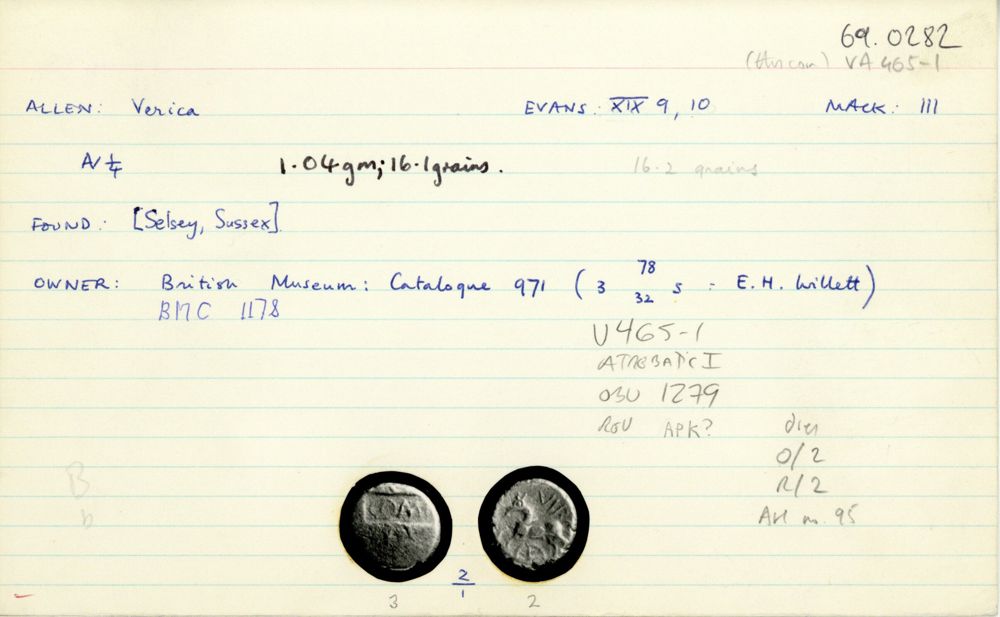 69.0282
VA 465-1
ALLEN: Verica EVANS: XIX 9, 10 MACK: 111
1.04gm; 16.1grains. 16.2 grains
FOUND: [Selsey, Sussex]
OWNER: British Museum: Catalogue 971 (3 78 32 S : E.H. Willett)
BMC 1178
V465-1
ATREBATIC I
OBV 1279
REV APK? dies
O/2
R/2
no. 95
B
b
COM
VIR
2
1
3 2